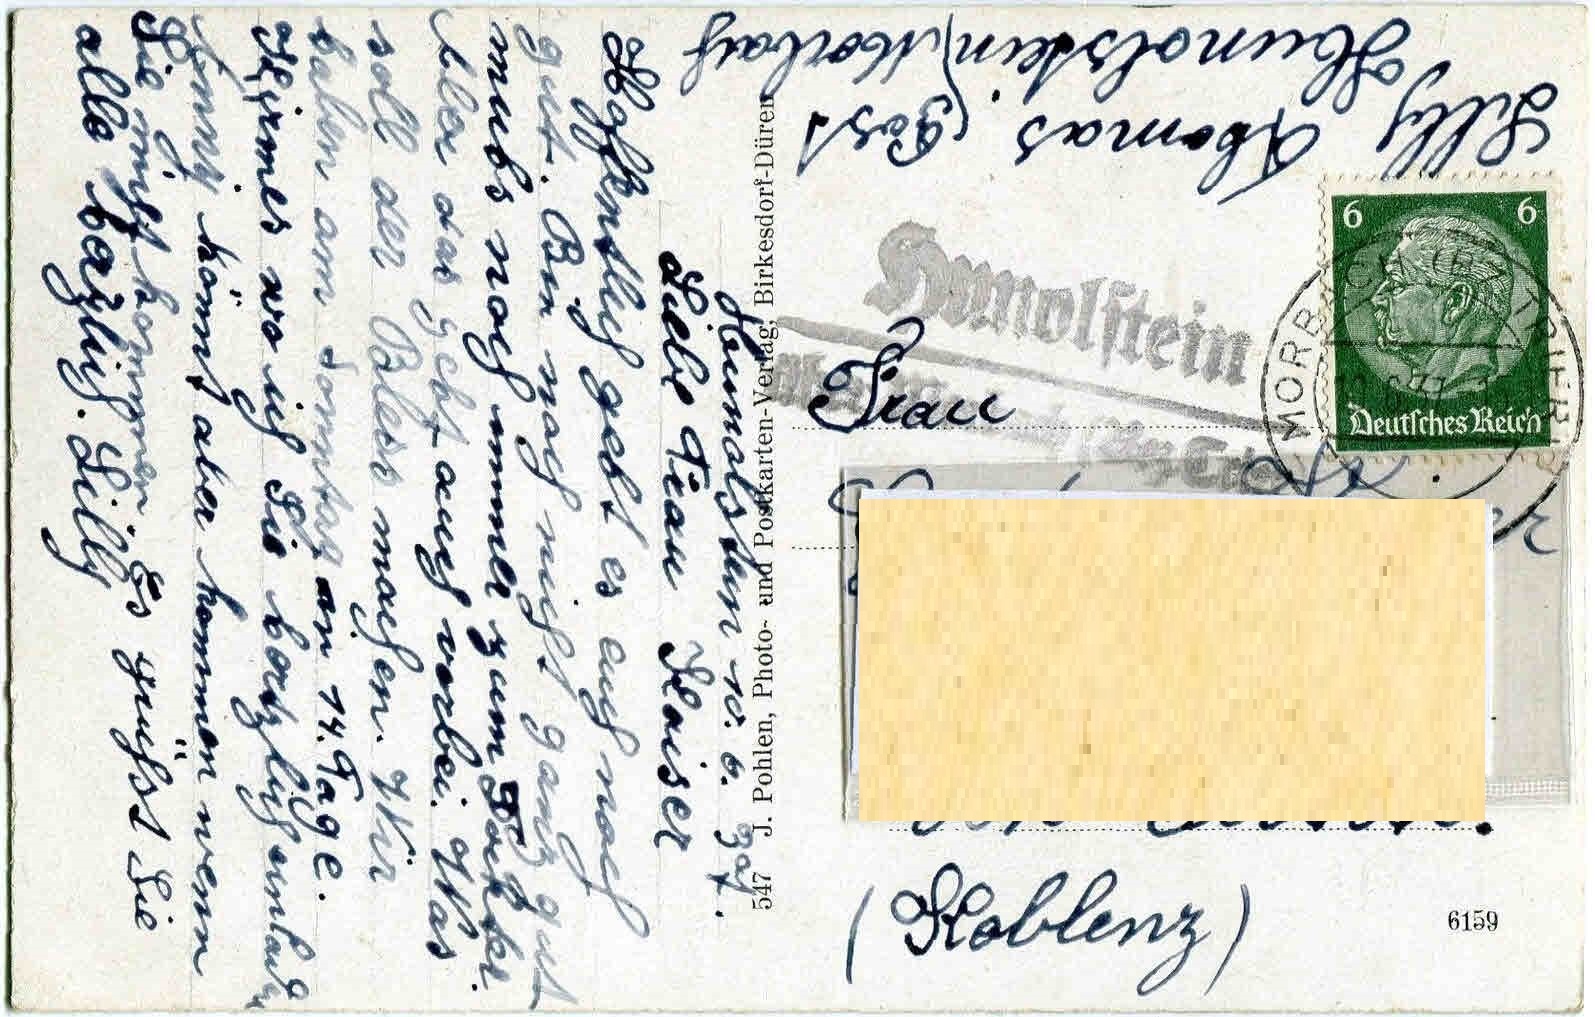 Hunolstein 10. 6.
Liebe Frau Kaiser
Hoffentlich geht es euch noch
gut. Bin noch nicht ganz gut
muß noch immer zum Dokter.
Aber das geht auch vorbei. Was
soll der Bless machen. Wir
haben am Sonntag in 14. Tage.
Kirmes wo ich Sie herzlich einlade
Jenny könnt aber kommen wenn
Sie nicht kommen. Es grüßt Sie
alle herzlich. Lilly
547 J. Pohlen, Photo- und Postkarten-Verlag, Birkesdorf-Düren
Lilly Thomas
Hunolstein (Post Morbach
Hunolstein
6 6
Deutsches Reich
MORBACH (BZ TRIER)
Frau
(Koblenz)
6159